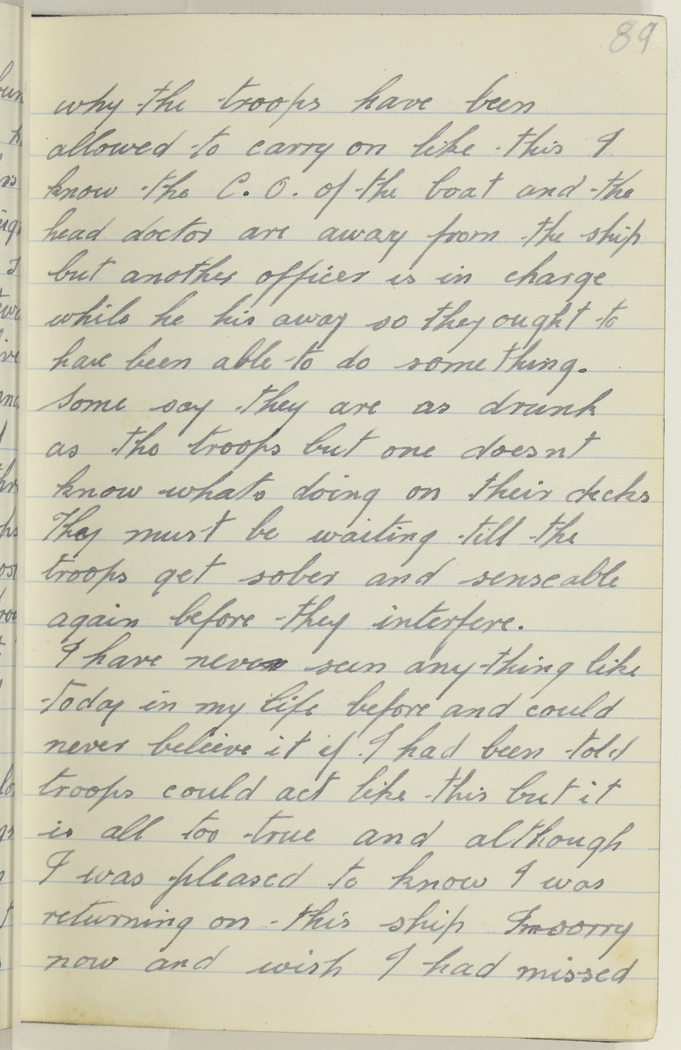 89
why the troops have been
allowed to carry on like this I
know the C.O. of the boat and the
head doctor are away from the ship
but another officer is in charge
while he his away so they ought to
have been able to do something.
Some say they are as drunk
as the troops but one doesnt
know whats doing on their decks
They must be waiting till the
troops get sober and senseable
again before they interfere.
I have never seen anything like
today in my life before and could
never beleive it if I had been told
troops could act like this but it
is all too true and although
I was pleased to know I was
returning on this ship Im sorry
now and wish I had missed